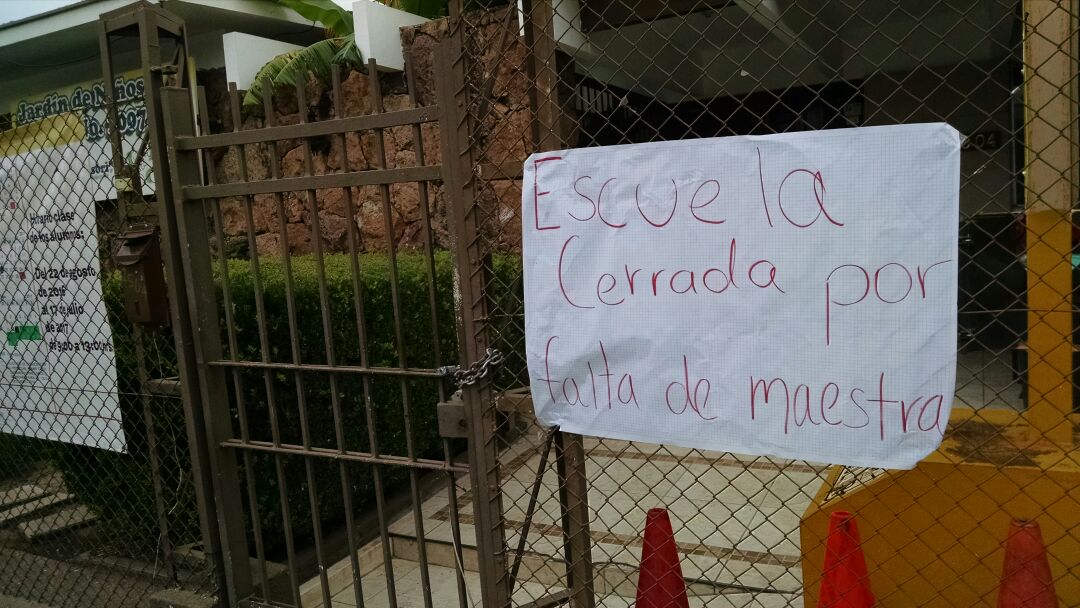 Jardín de Niños
Horario clase
de los alumnos:
Del 22 de agosto
de 2016
al 17 de julio
de 2017
de 9:00 a 13:00 hrs
Escuela
Cerrada por
falta de maestra